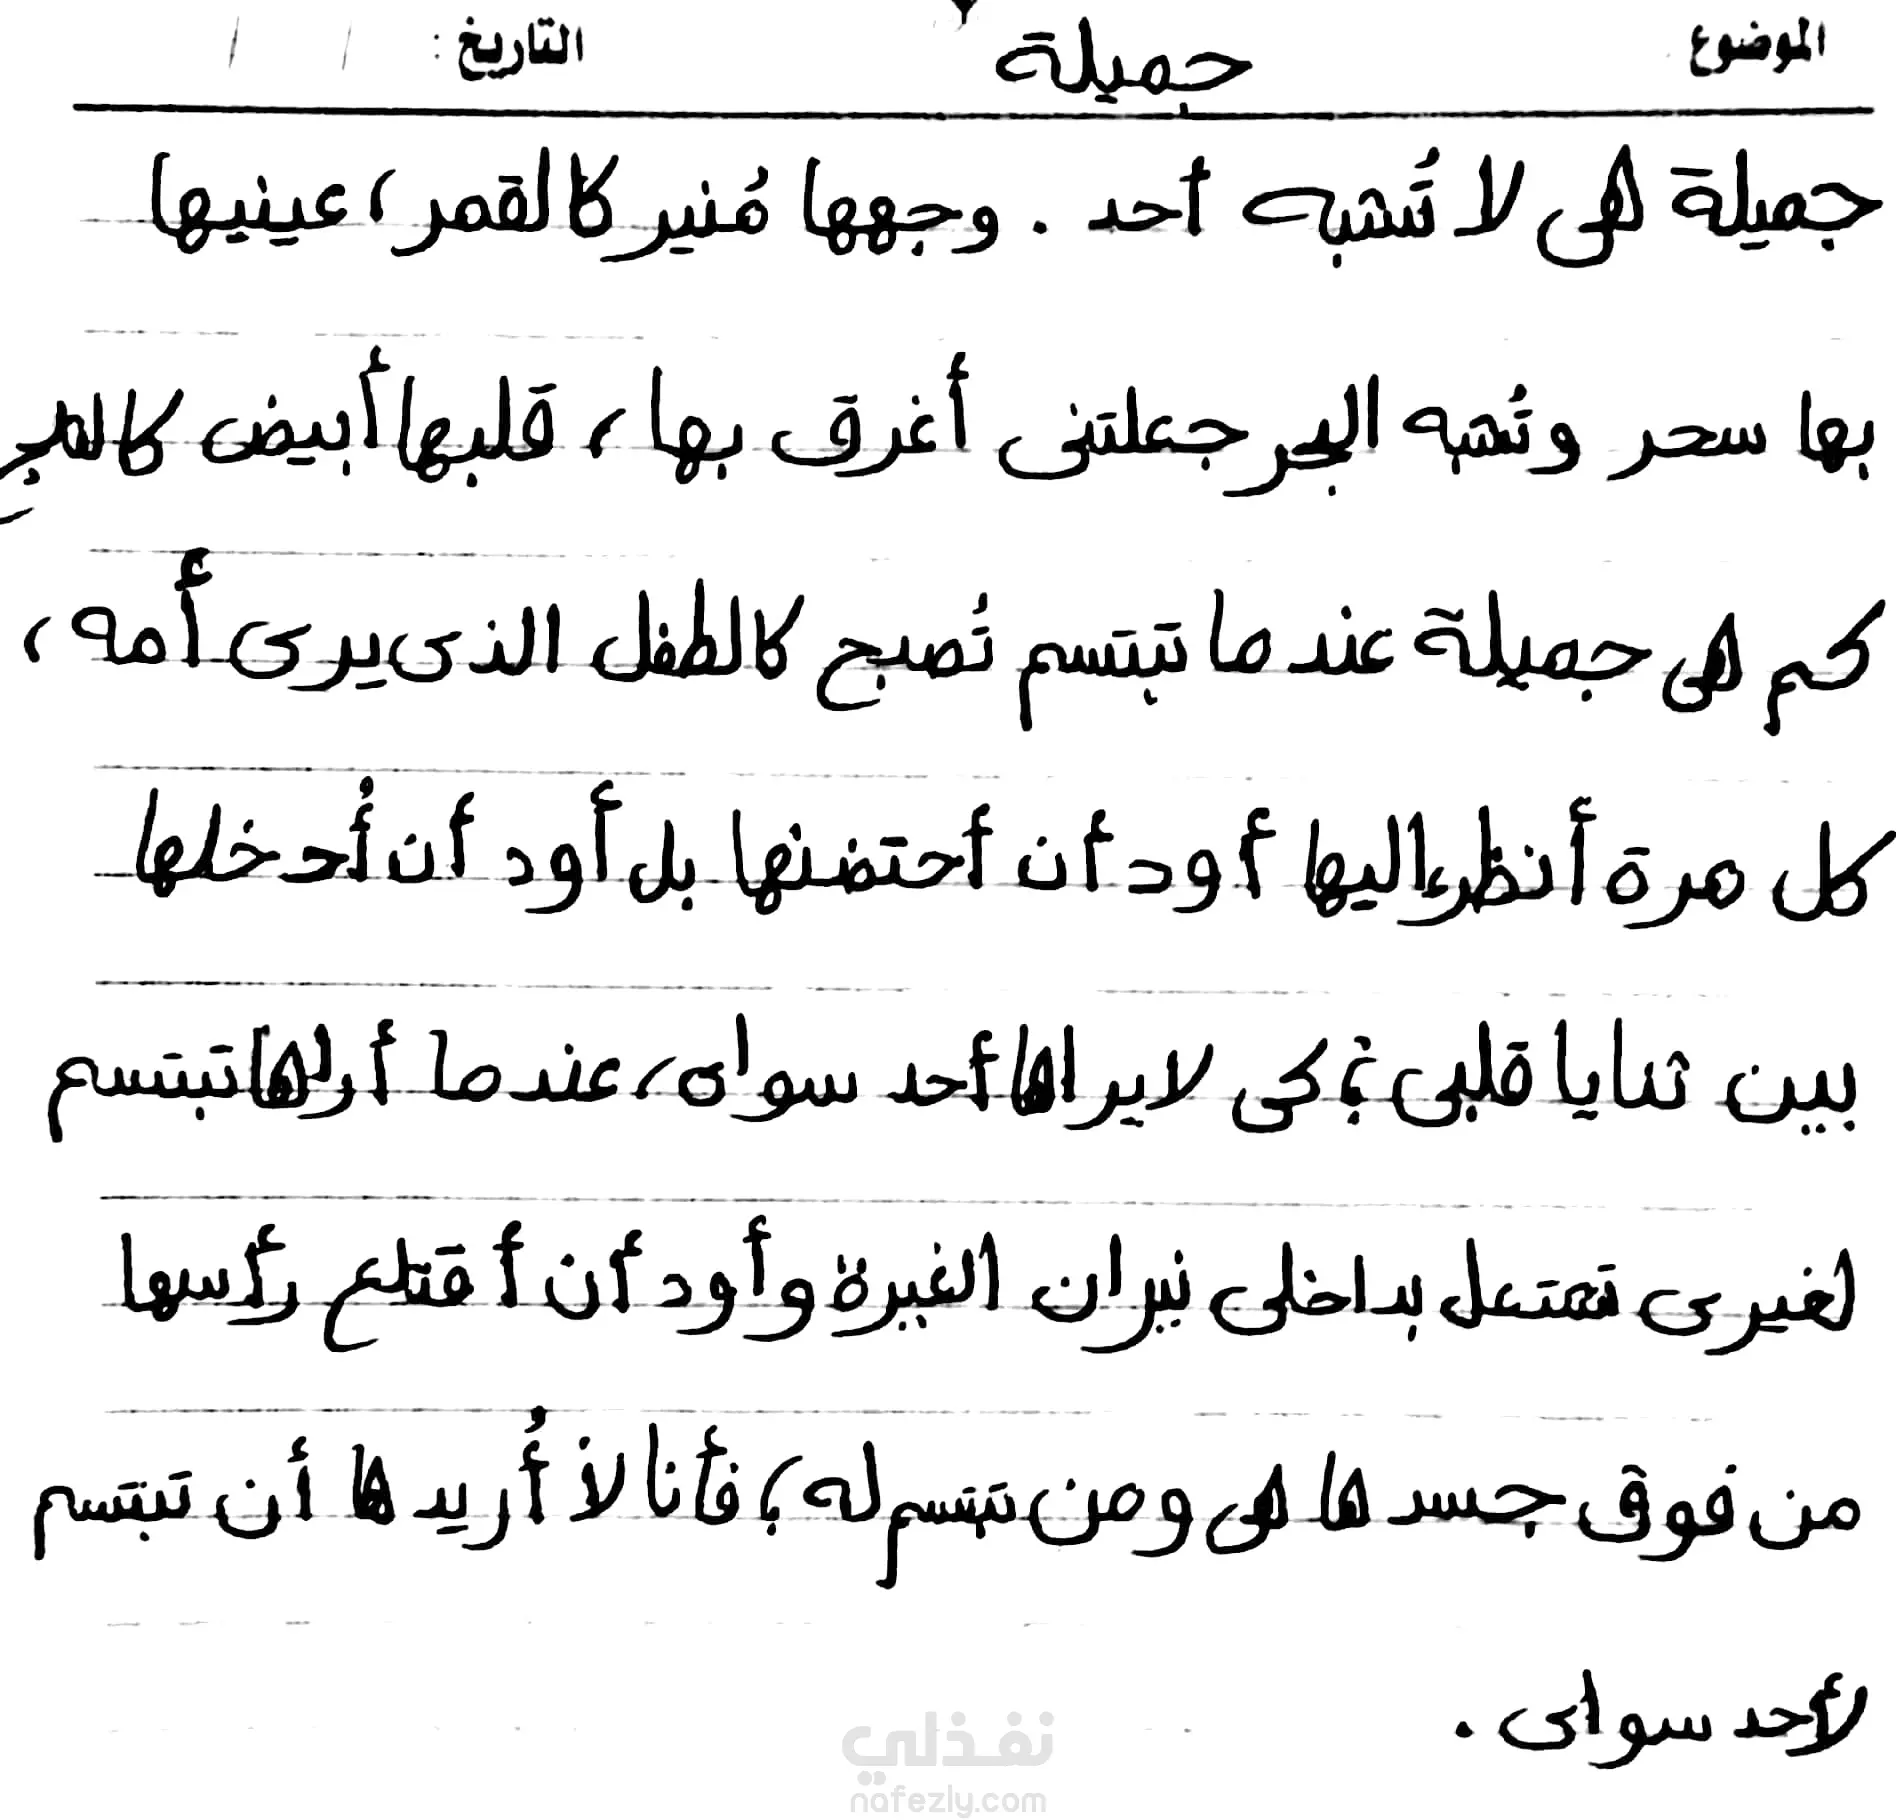 الموضوع جميلة التاريخ : / /
جميلة هى لا تُشبه أحد . وجهها مُنير كالقمر ، عينيها
بها سحر وتُشبه البحر جعلتنى أغرق بها ، قلبها أبيض
كم هى جميلة عندما تبتسم تُصبح كالطفل الذى يرى أمه ،
كل مرة أنظر اليها أود أن أحتضنها بل أود أن أُدخلها
بين ثنايا قلبى كى لا يراها أحد سواى ، عندما أراها تبتسم
لغيرى تشتعل بداخلى نيران الغيرة وأود أن أقتلع رأسها
من فوق جسدها هى ومن تبتسم له ؛ فأنا لا أُريدها أن تبتسم
لأحد سواى .
نفذلي
nafezly.com